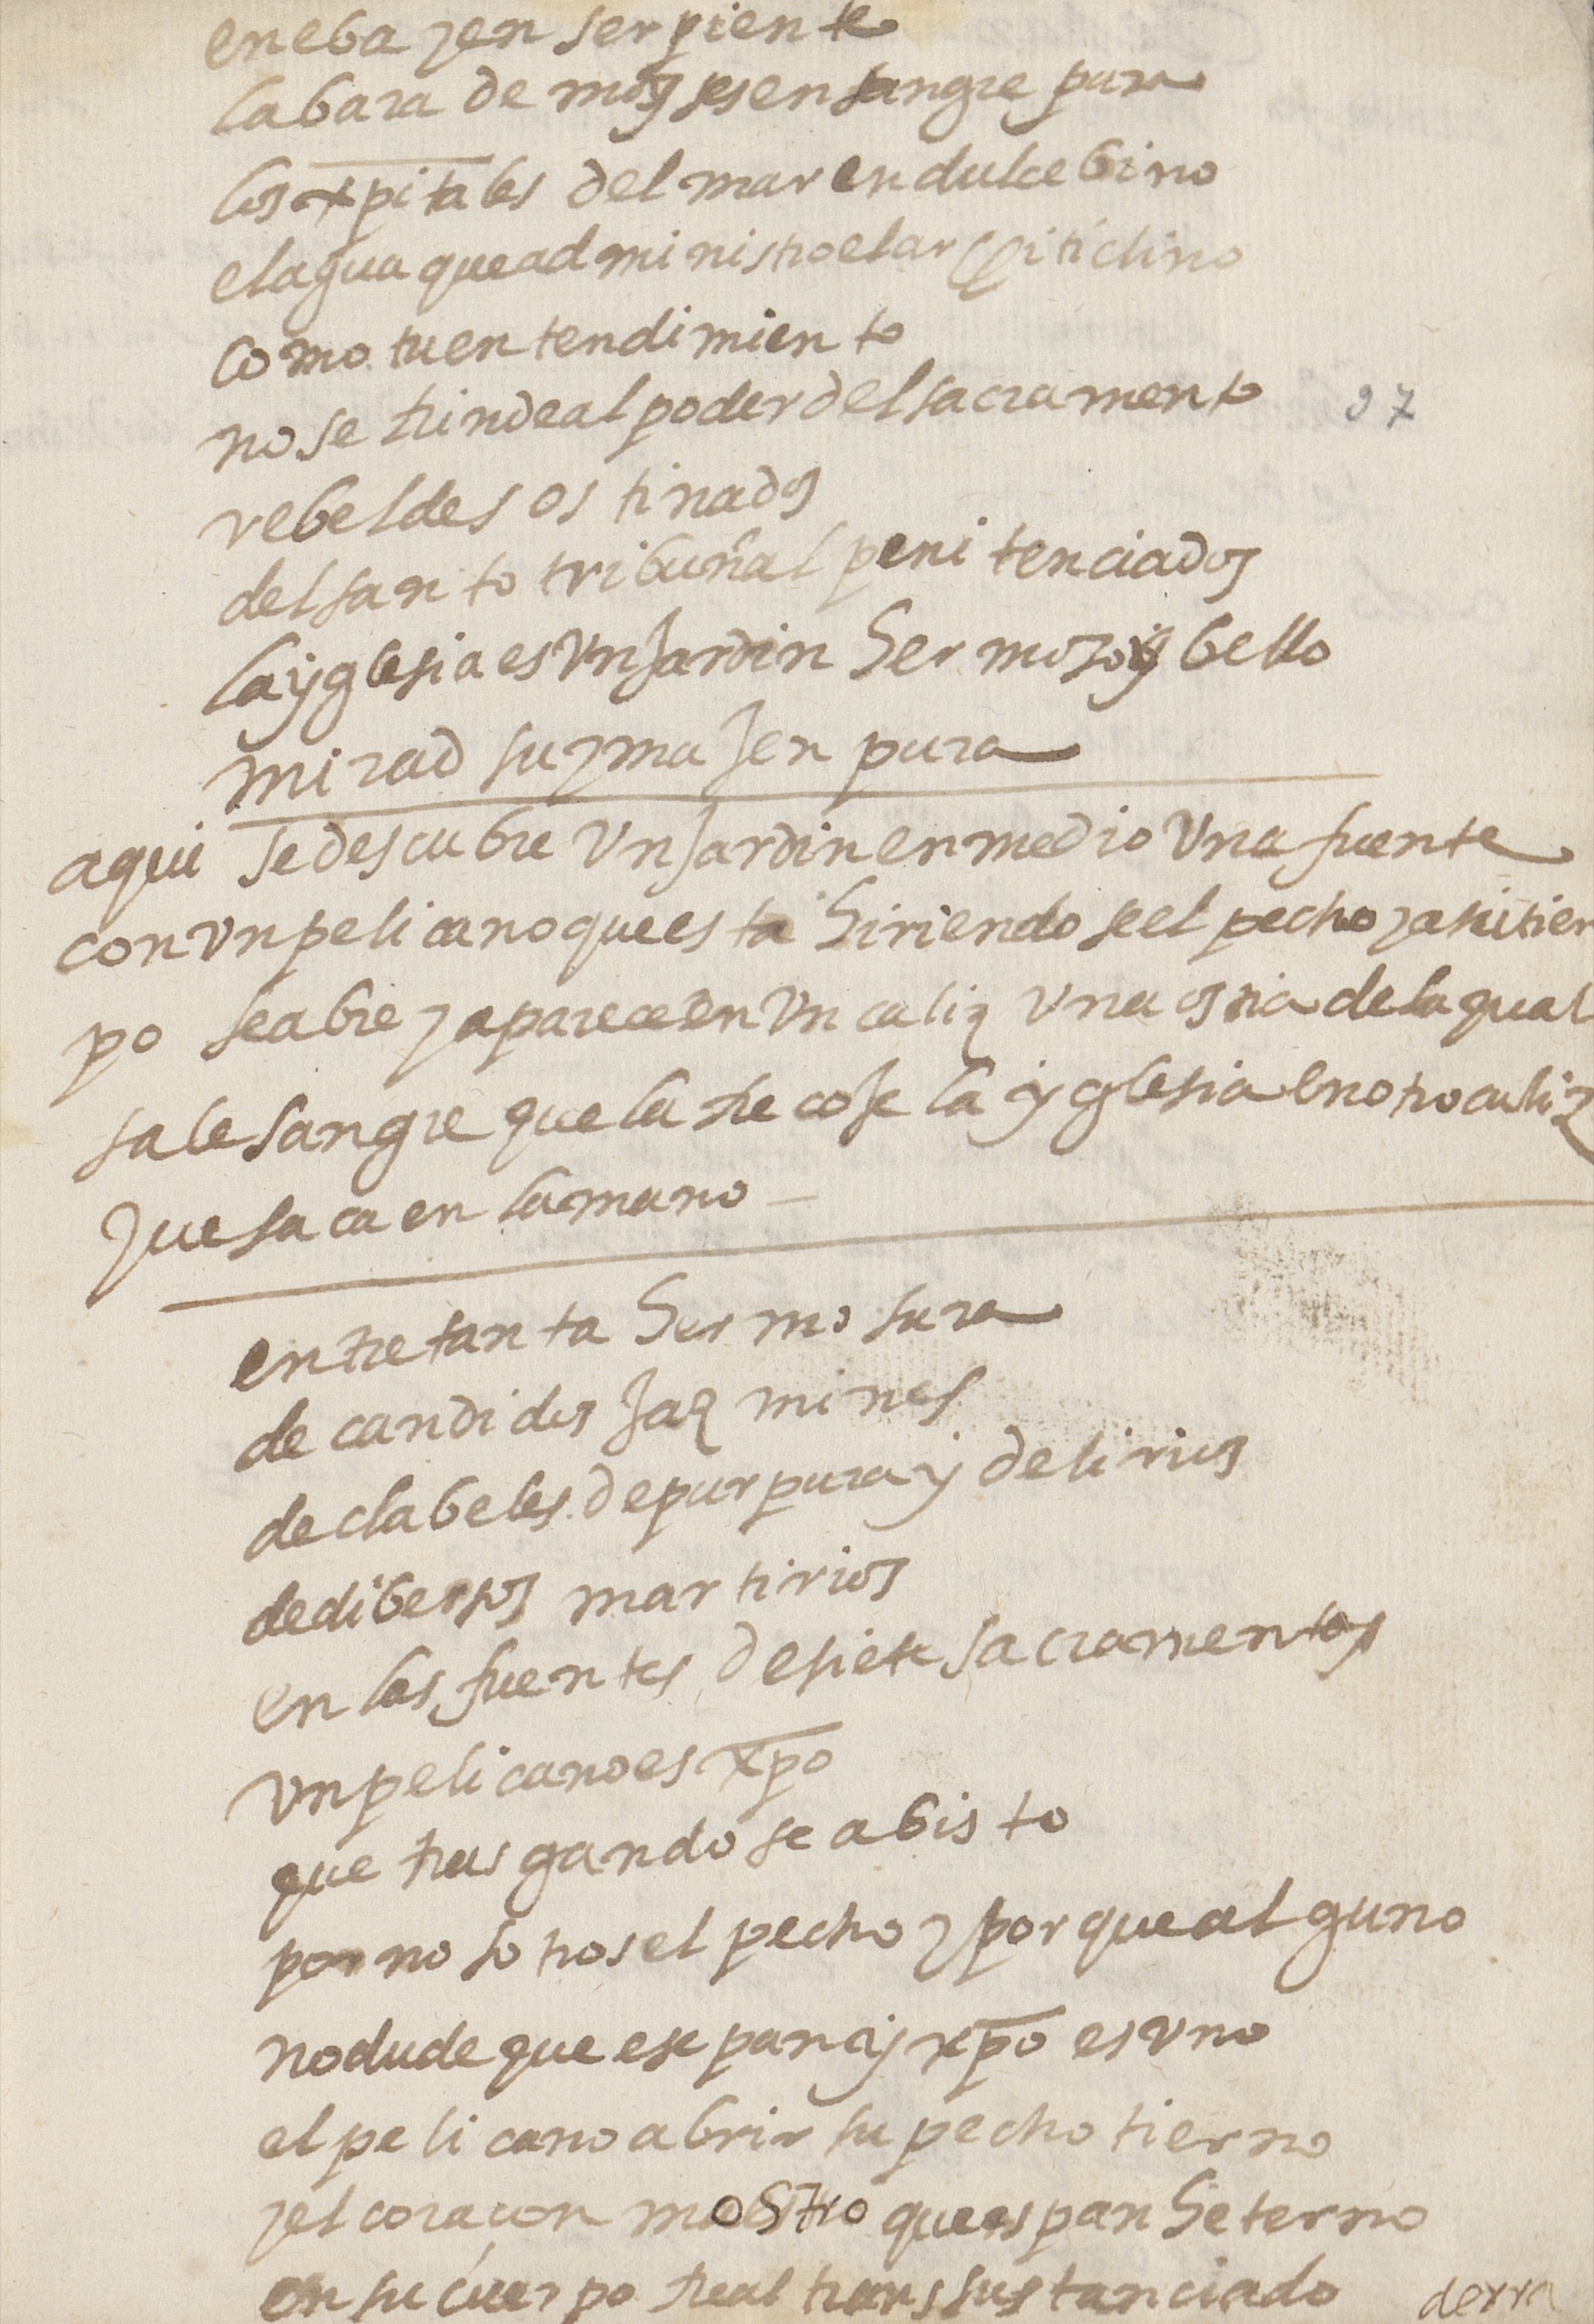 en eba y en serpiente
la bara de moyses en sangre pura
los xpitales del mar en dulce bino
el agua que administro el architiclino
como tu entendimiento
no se rrinde al poder del sacramento 97
rebeldes ostinados
del santo tribunal penitenciados
la yglesia es Vn Jardin hermoso y bello
mirad su ymaJen pura
aqui se descubre Vn Jardin en medio Vna fuente
con Vn pelicano que esta hiriendose el pecho y a su tiem
po se abre y aparece en Vn caliz Vna ostia de la qual
sale sangre que la rrecoJe la yglesia en otro caliz
que saca en la mano
entre tanta hermosura
de candidos Jazmines
de clabeles de purpura y de lirios
de dibersos martirios
en las fuentes de siete sacramentos
Vn pelicano es xpo
que rrasgandose a bisto
por nosotros el pecho y porque alguno
no dude que ese pan y xpo es Vno
el pelicano abrir su pecho tierno
y el coraçon mostro que es pan heterno
en su cuerpo rreal transsustanciado derra